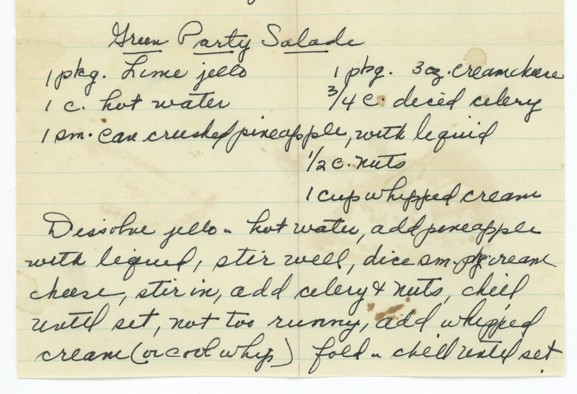 Green Party Salade
1 pkg. Lime jello
1 pkg. 3 oz. creamcheese
1 c. hot water
3/4 c. diced celery
1 sm. can crushed pineapple, with liquid
1/2 c. nuts
1 cup whipped cream
Dissolve jello - hot water, add pineapple
with liquid, stir well, dice sm. pkg cream
cheese, stir in, add celery & nuts, chill
until set, not too runny, add whipped
cream (or cool whip) fold - chill until set